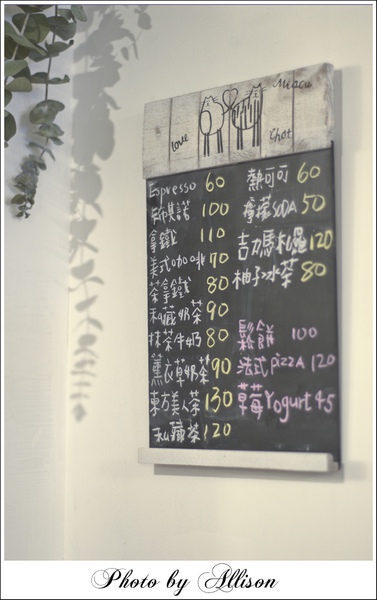 Miaou
love
Chat
Espresso 60
卡布其諾 100
拿鐵 110
美式咖啡 70
茶拿鐵 80
私藏奶茶 90
抹茶牛奶 80
薰衣草奶茶 90
東方美人茶 130
私藏茶 120
熱可可 60
檸檬SODA 50
吉力馬札羅 120
柚子冰茶 80
鬆餅 100
法式pizzA 120
草莓Yogurt 45
Photo by Allison